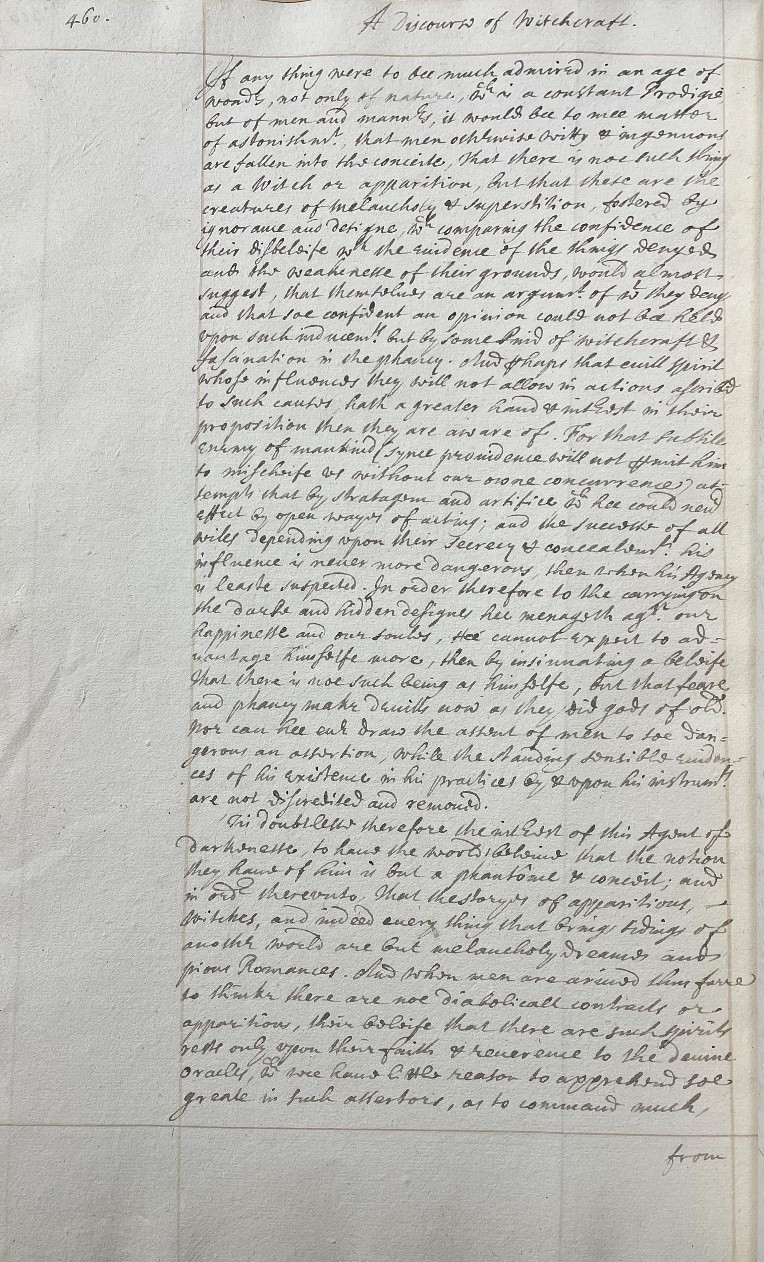 460.
A Discourse of Witchcraft.
If any thing were to bee much admired in an age of
wonds, not only of nature, wch is a constant Prodigie
but of men and manns, it would bee to mee matter
of astonishmt., that men otherwise witty & ingenuous
are fallen into the conceite, that there is noe such thing
as a Witch or apparition, but that these are the
creatures of melancholy & superstition, fostered by
ignorance and designe, wch comparing the confidence of
their disbeleife wth the euidence of the things denyed
and the weaknesse of their grounds, would almost
suggest, that themselues are an argumt. of wt they deny
and that soe confident an opinion could not bee held
vpon such inducemts. but by some kind of witchcraft &
fascination in the phancy. And phaps that euill spirit
whose influences they will not allow in actions ascribd
to such causes, hath a greater hand & intrest in their
proposition then they are aware of. For that subtile
Enemy of mankind (synce prouidence will not pmit him
to mischeife vs without our owne concurrence) at-
tempts that by stratagem and artifice wch hee could neur
effect by open wayes of acting; and the successe of all
wiles depending vpon their secrecy & concealemt. his
influence is never more dangerous, then when his Agency
is leaste suspected. In order therefore to the carrying on
the darke and hidden designes hee menageth agst. our
happinesse and our soules, Hee cannot expect to ad-
vantage himselfe more, then by insinuating a beleife
That there is noe such being as himselfe, but that feare
and phancy make deuills now as they did gods of old.
Nor can hee eur draw the assent of men to soe dan-
gerous an assertion, while the standing sensible euiden-
ces of his existence in his practices by & vpon his instrumts.
are not discredited and remoued.
'Tis doubtlesse therefore the intrest of this Agent of
darknesse, to haue the world beleiue that the notion
they haue of him is but a phantôme & conceit; and
in ordr therevnto, That the storyes of apparitions, -
witches, and indeed euery thing that brings tidings of
anothr world are but melancholy dreames and
pious Romances. And when men are ariued thus farre
to thinke there are noe diabolicall contracts or
apparitions, their beleife that there are such spirits
rests only vpon their faith & reuerence to the deuine
oracles, wch wee haue little reason to apprehend soe
greate in such assertors, as to command much,
from